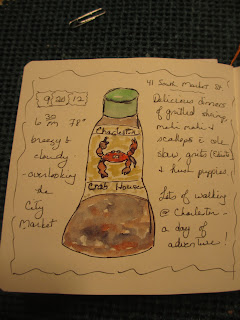 9/20/12
6:30 PM 78°
breezy &
cloudy
- overlooking
the
City
Market
Charleston
Crab House
41 South Market St.
Delicious dinners
of grilled shrimp,
mahi mahi &
scallops c cole
slaw, grits
& hush puppies
Lots of walking
@ Charleston -
a day of
adventure!